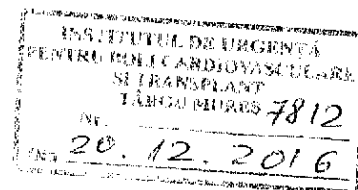 INSTITUTUL DE URGENȚĂ
PENTRU BOLI CARDIOVASCULARE
ȘI TRANSPLANT
TÂRGU MUREȘ
Nr. 7812
20. 12. 2016